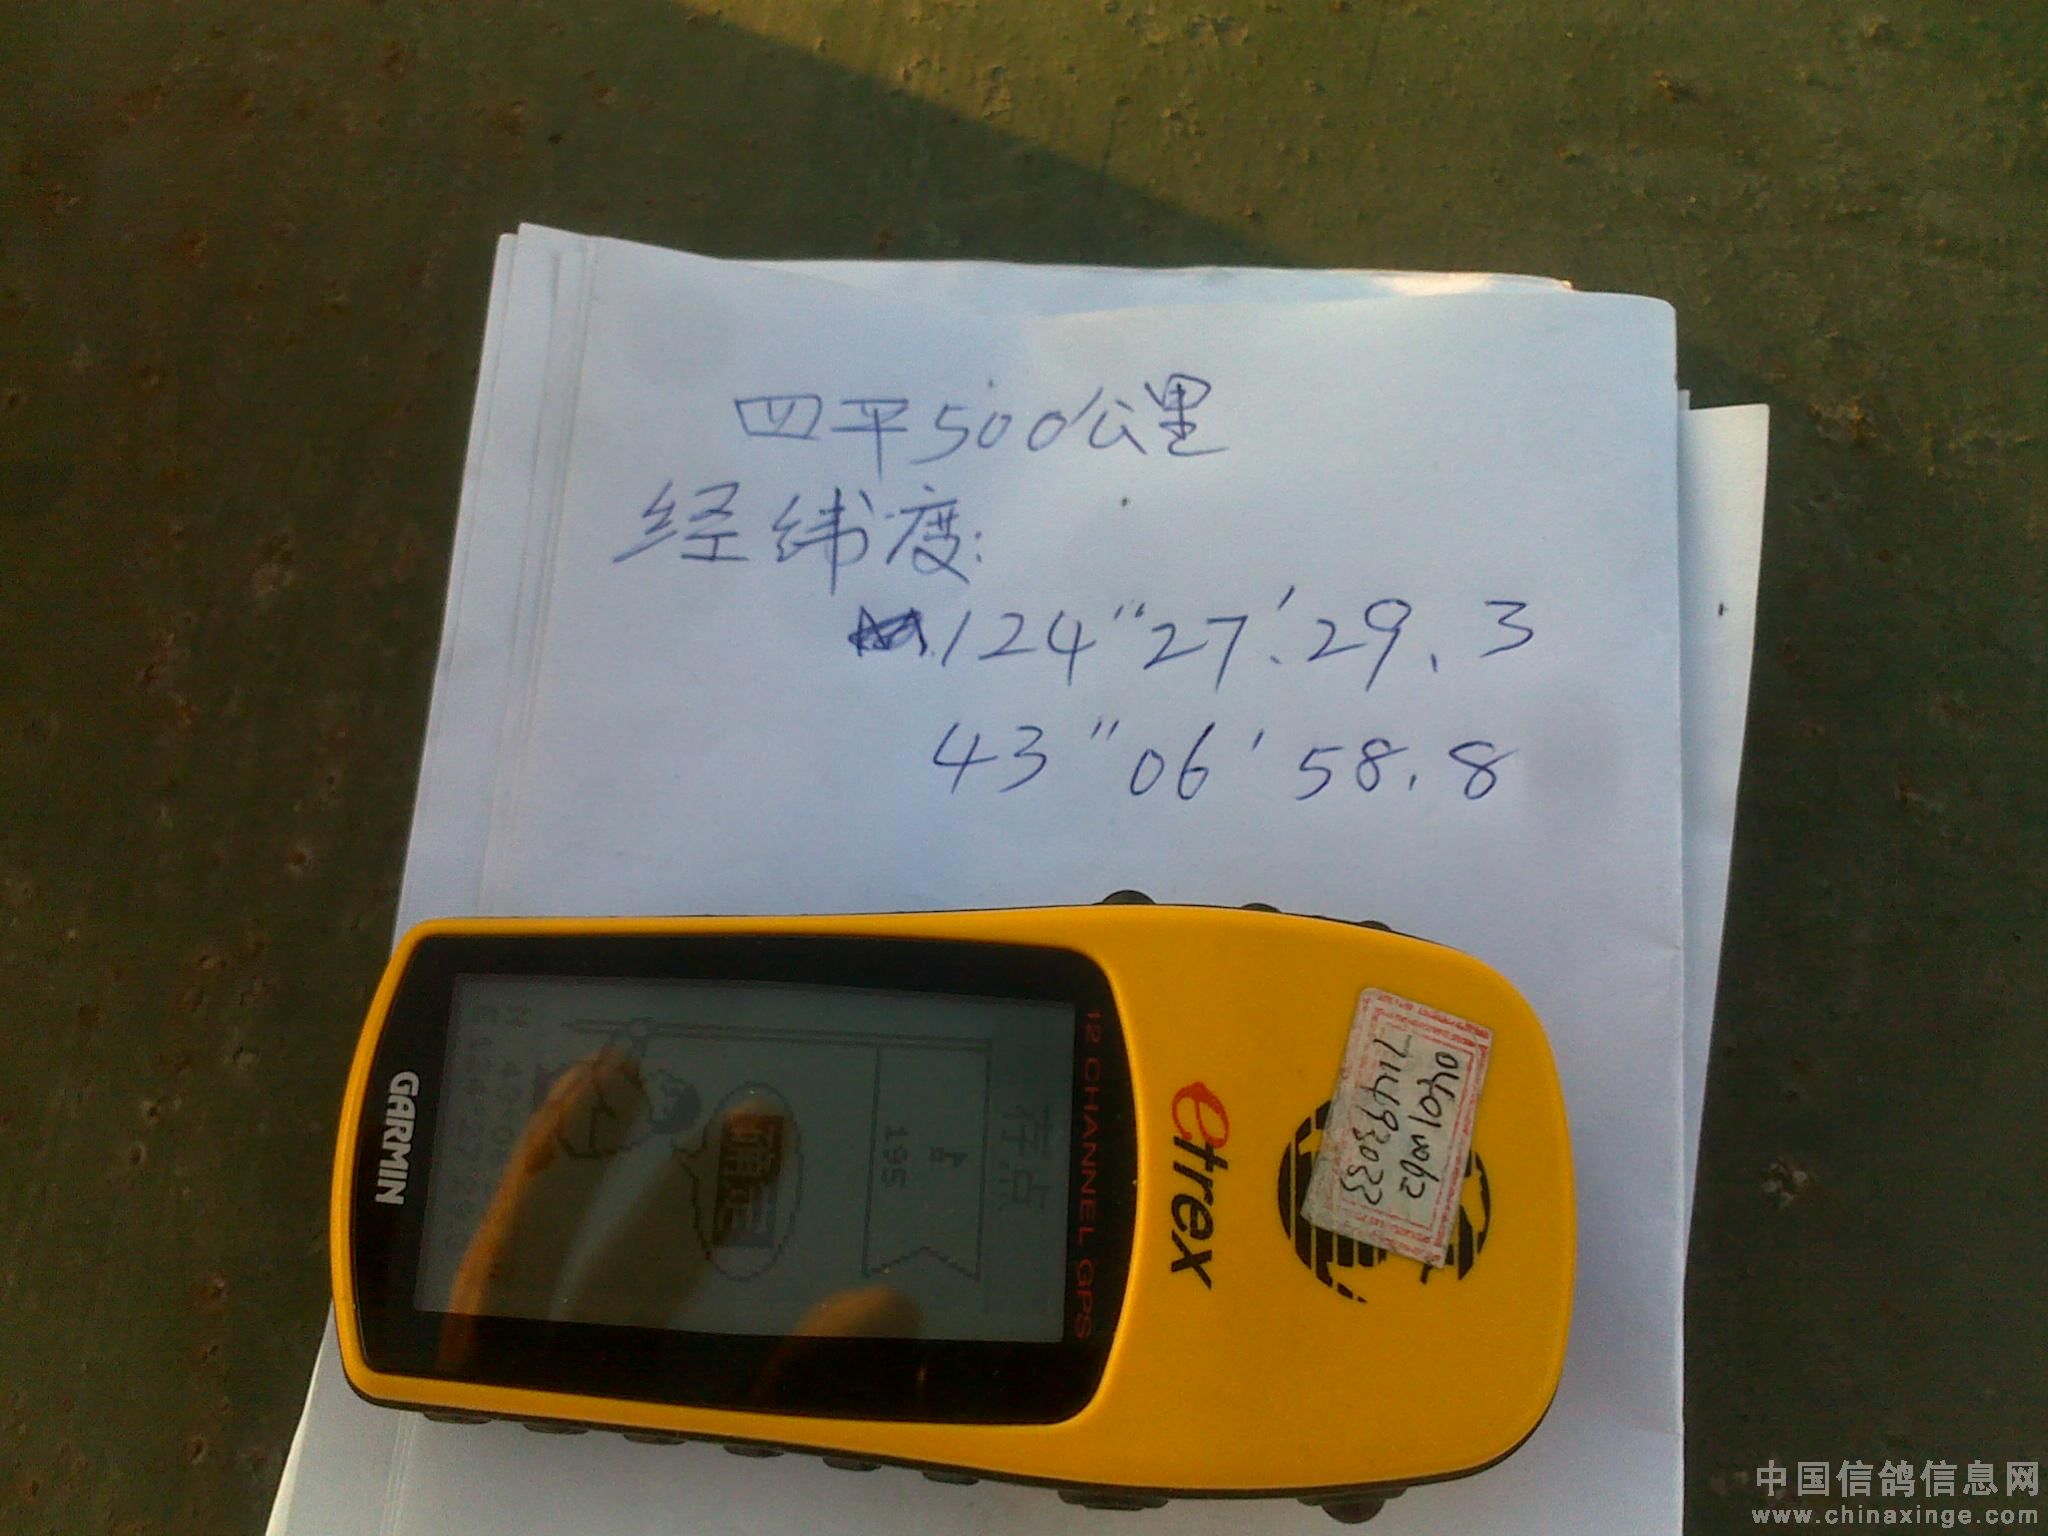 四平500公里
经纬度:
124"27'.29.3
43"06'58.8
12 CHANNEL GPS
etrex
GARMIN
存点
195
确定
中国信鸽信息网
www.chinaxinge.com